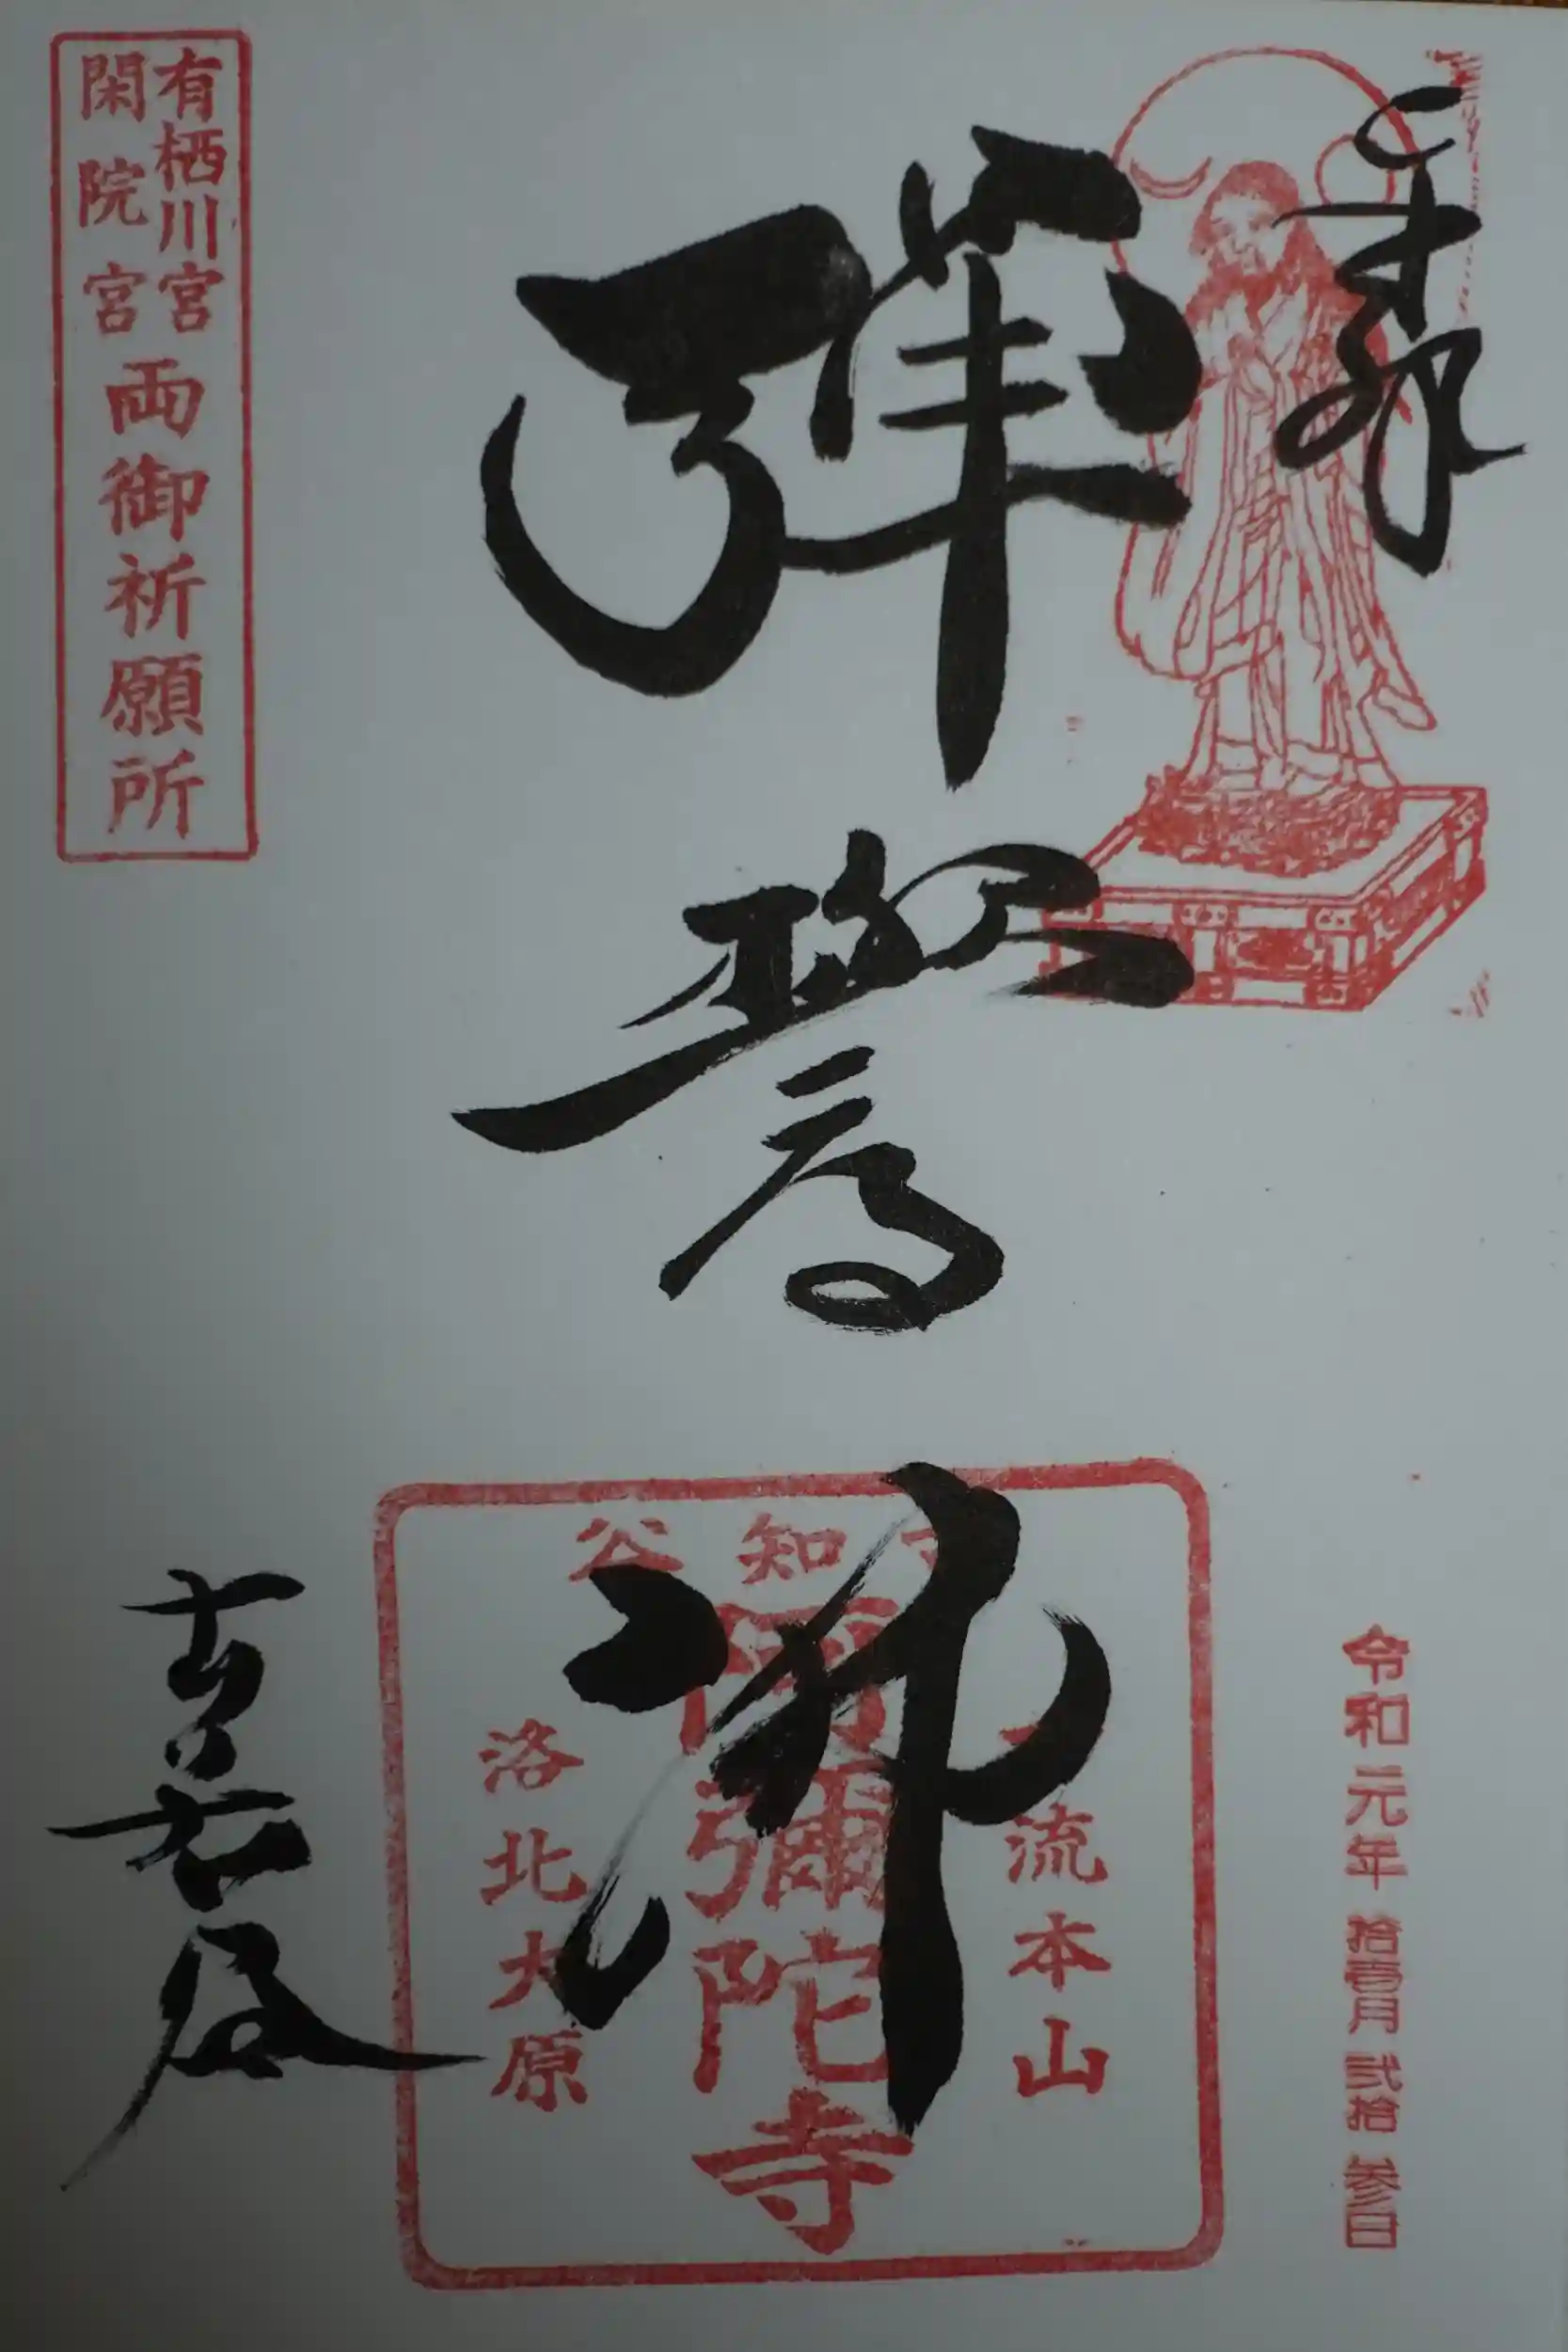 奉拝
令和元年 拾壹月 弐拾 参日
彈誓佛
知谷
流本山
阿彌陀寺
洛北大原
有栖川宮
閑院宮
両御祈願所